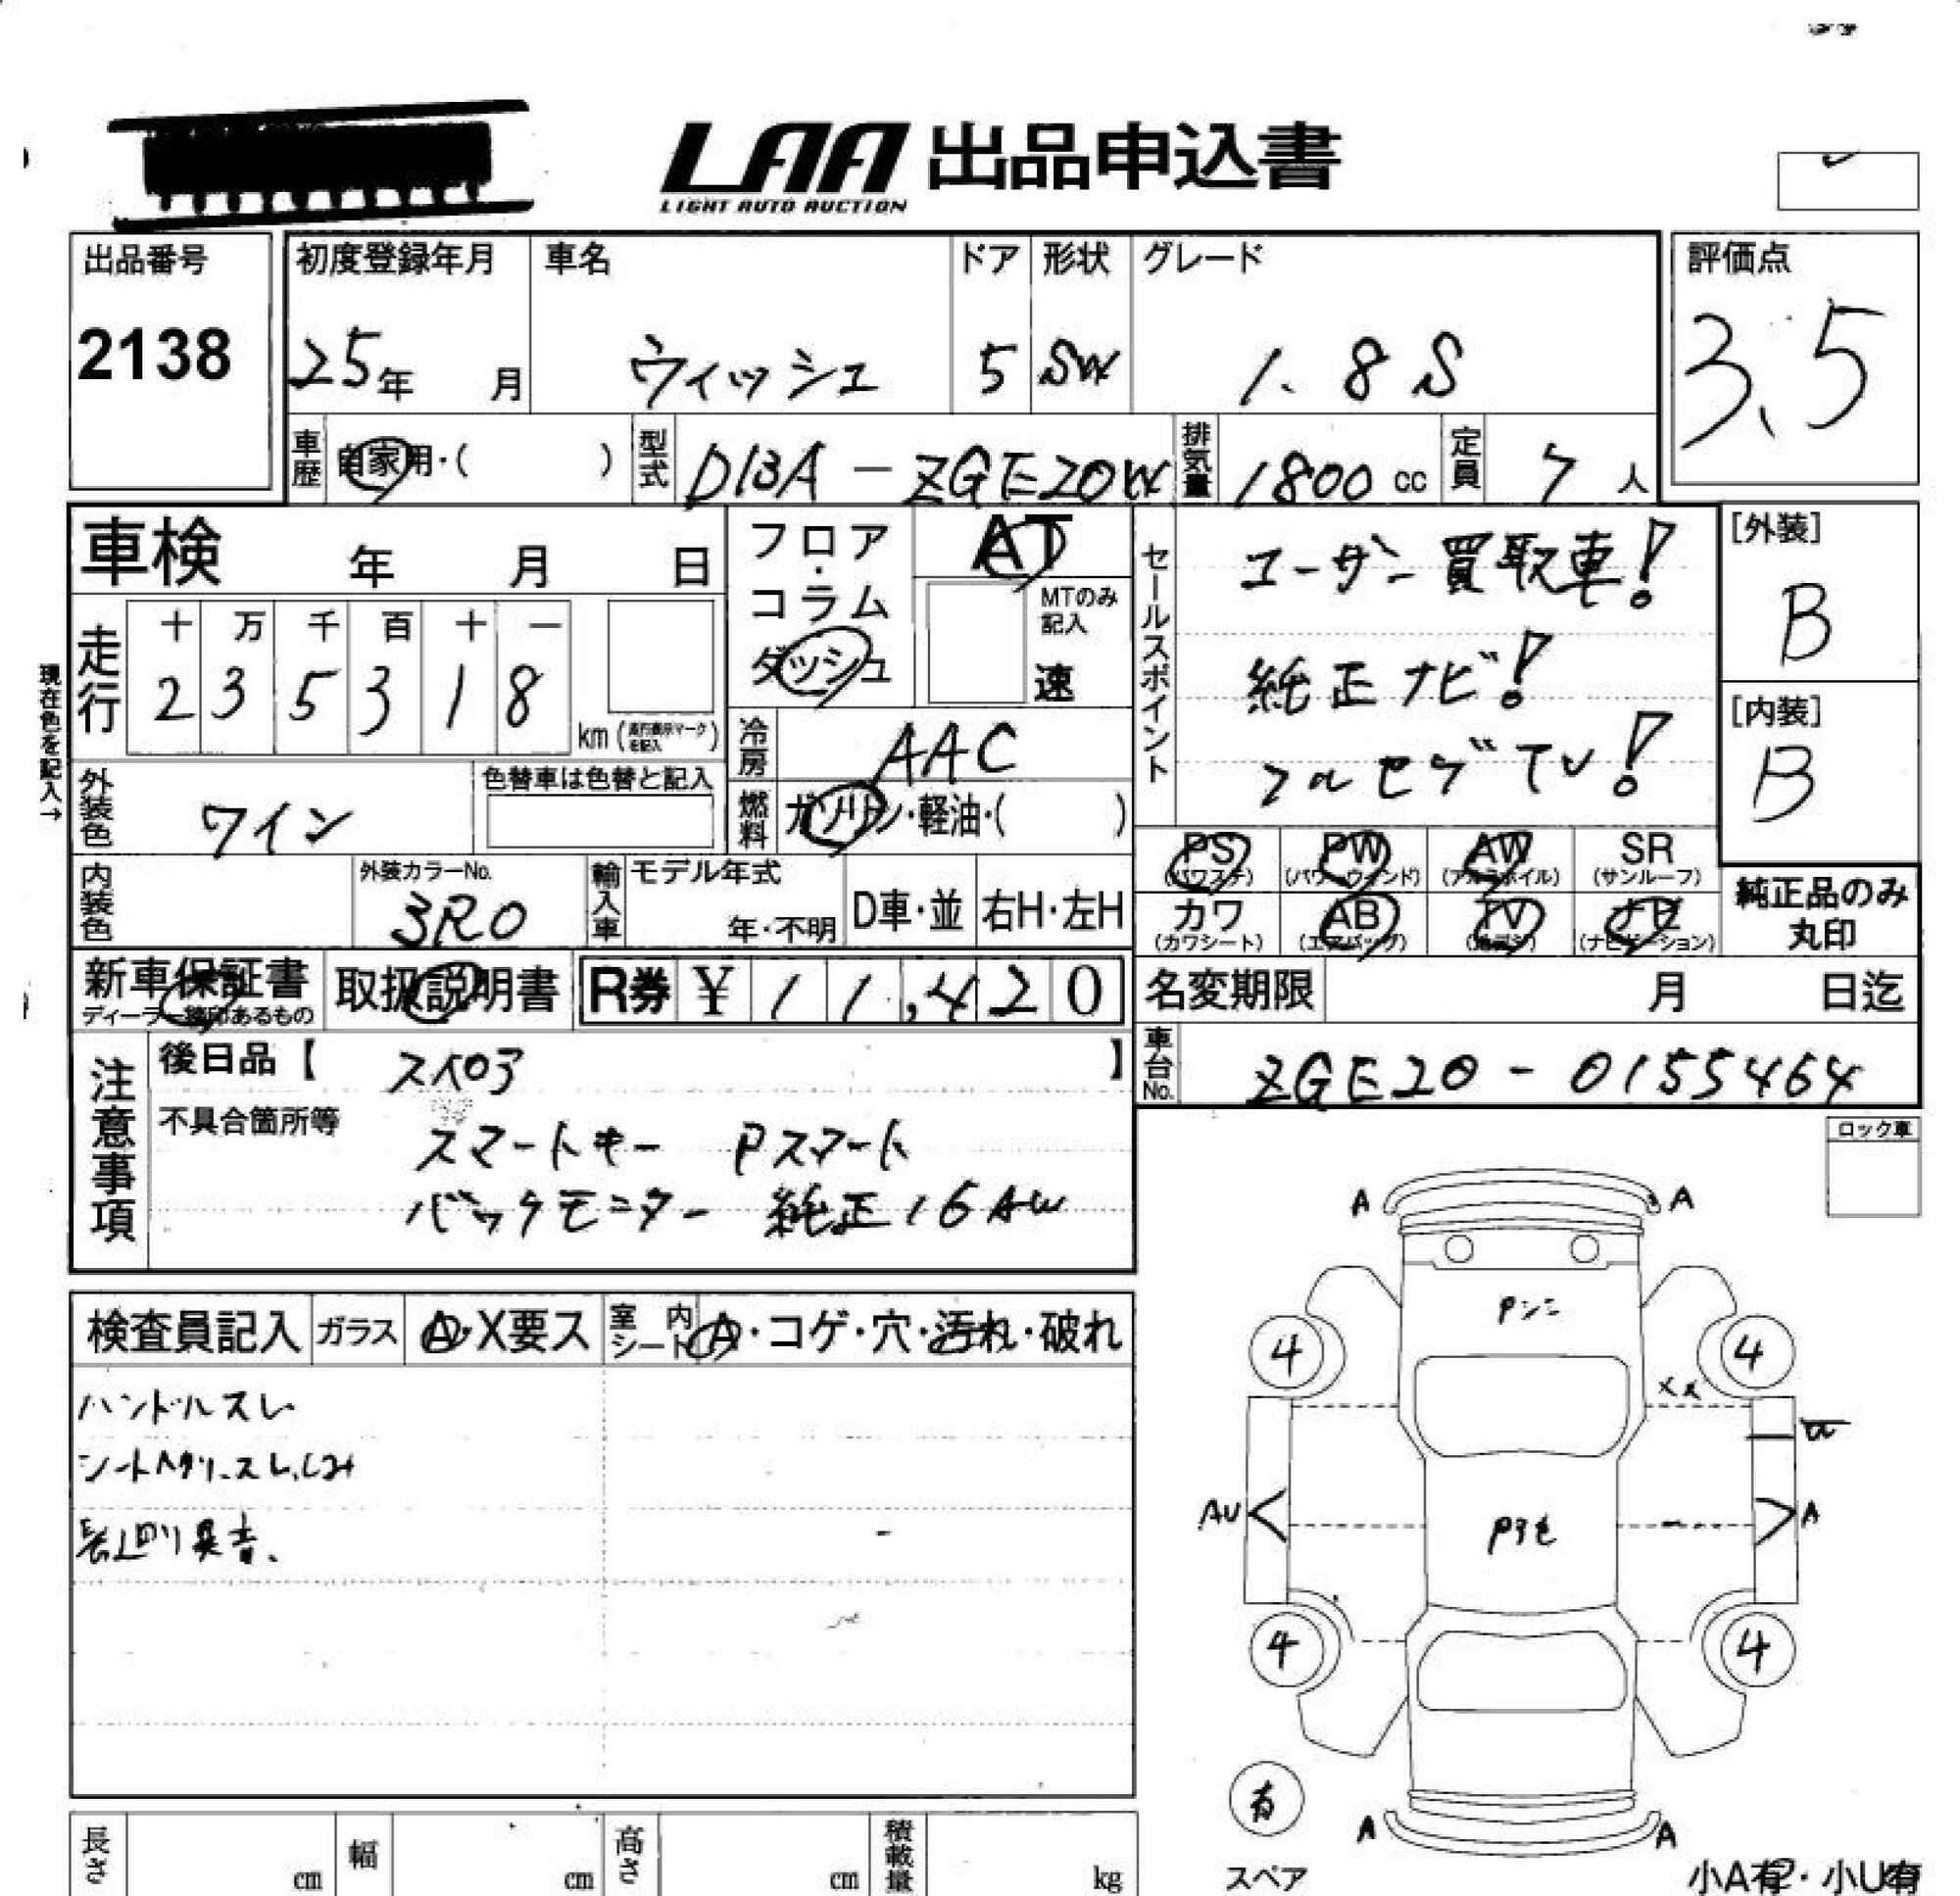 LAA 出品申込書
LIGHT AUTO AUCTION
出品番号
2138
初度登録年月
25年 月
車名
ウィッシュ
ドア
5
形状
SW
グレード
1.8 S
評価点
3.5
車歴 自家用・( )
型式 DBA-ZGE20W
排気量 1800 cc
定員 7 人
車検 年 月 日
走行
十 万 千 百 十 一
2 3 5 3 1 8
km (走行表示マークを記入)
現在色を記入→
フロア・コラム
ダッシュ
AT
MTのみ記入
速
セールスポイント
ユーザー買取車!
純正ナビ!
フルセグTV!
[外装]
B
[内装]
B
冷房 AAC
燃料 ガソリン・軽油・( )
外装色 ワイン
色替車は色替と記入
内装色
外装カラーNo.
3R0
輸入車
モデル年式
年・不明
D車・並
右H・左H
PS (パワステ)
PW (パワーウィンド)
AW (アルミホイル)
SR (サンルーフ)
カワ (カワシート)
AB (エアバッグ)
TV
ナビ (ナビゲーション)
純正品のみ
丸印
新車保証書
取扱説明書
R券 ¥ 11,420
名変期限 月 日迄
車台No. ZGE20-0155464
注意事項
後日品【 】
不具合箇所等
スマートキー Pスマート
バックモニター 純正16AW
ロック車
検査員記入
ガラス A・X要ス
室内シート A・コゲ・穴・汚れ・破れ
ハンドルスレ
異音.
A A
4 4
XX
AU A
4 4
有
スペア
A A
小A有・小U有
長さ cm
幅 cm
高さ cm
積載量 kg